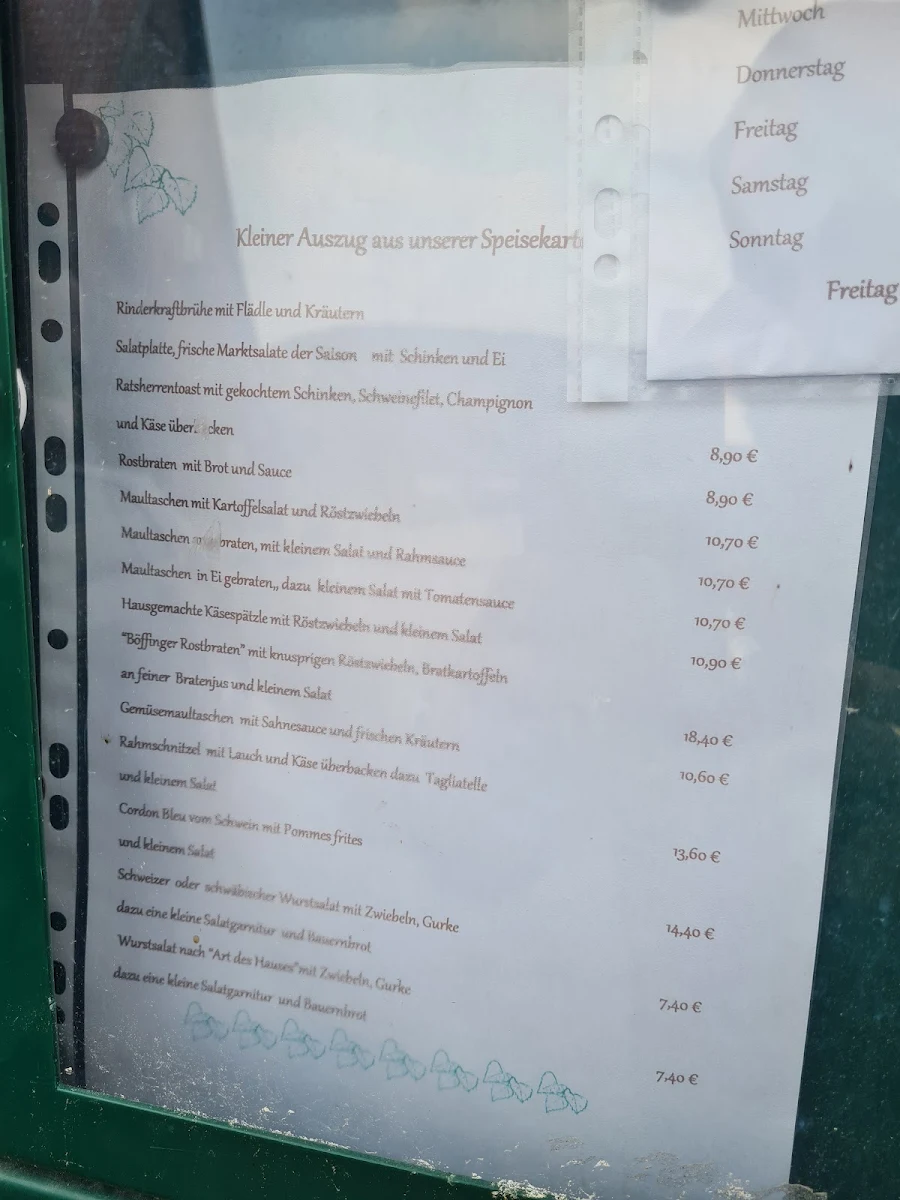 Mittwoch
Donnerstag
Freitag
Samstag
Sonntag
Freitag
Kleiner Auszug aus unserer Speisekart
Rinderkraftbrühe mit Flädle und Kräutern
Salatplatte, frische Marktsalate der Saison mit Schinken und Ei
Ratsherrentoast mit gekochtem Schinken, Schweinefilet, Champignon
und Käse 8,90 €
Rostbraten mit Brot und Sauce 8,90 €
Maultaschen mit Kartoffelsalat und Röstzwiebeln 10,70 €
Maultaschen mit kleinem Salat und Rahmsauce 10,70 €
Maultaschen in Ei gebraten,, dazu kleinem Salat mit Tomatensauce 10,70 €
Hausgemachte Käsespätzle mit Röstzwiebeln und kleinem Salat 10,90 €
"Böffinger Rostbraten" mit knusprigen Röstzwiebeln, Bratkartoffeln
an feiner Bratenjus und kleinem Salat 18,40 €
Gemüsemaultaschen mit Sahnesauce und frischen Kräutern 10,60 €
Rahmschnitzel mit Lauch und Käse überbacken dazu Tagliatelle
und kleinem Salat 13,60 €
Cordon Bleu vom Schwein mit Pommes frites
und kleinem Salat 14,40 €
Schweizer oder schwäbischer Wurstsalat mit Zwiebeln, Gurke
dazu eine kleine Salatgarnitur und Bauernbrot 7,40 €
Wurstsalat nach "Art des Hauses" mit Zwiebeln, Gurke
dazu eine kleine Salatgarnitur und Bauernbrot 7,40 €